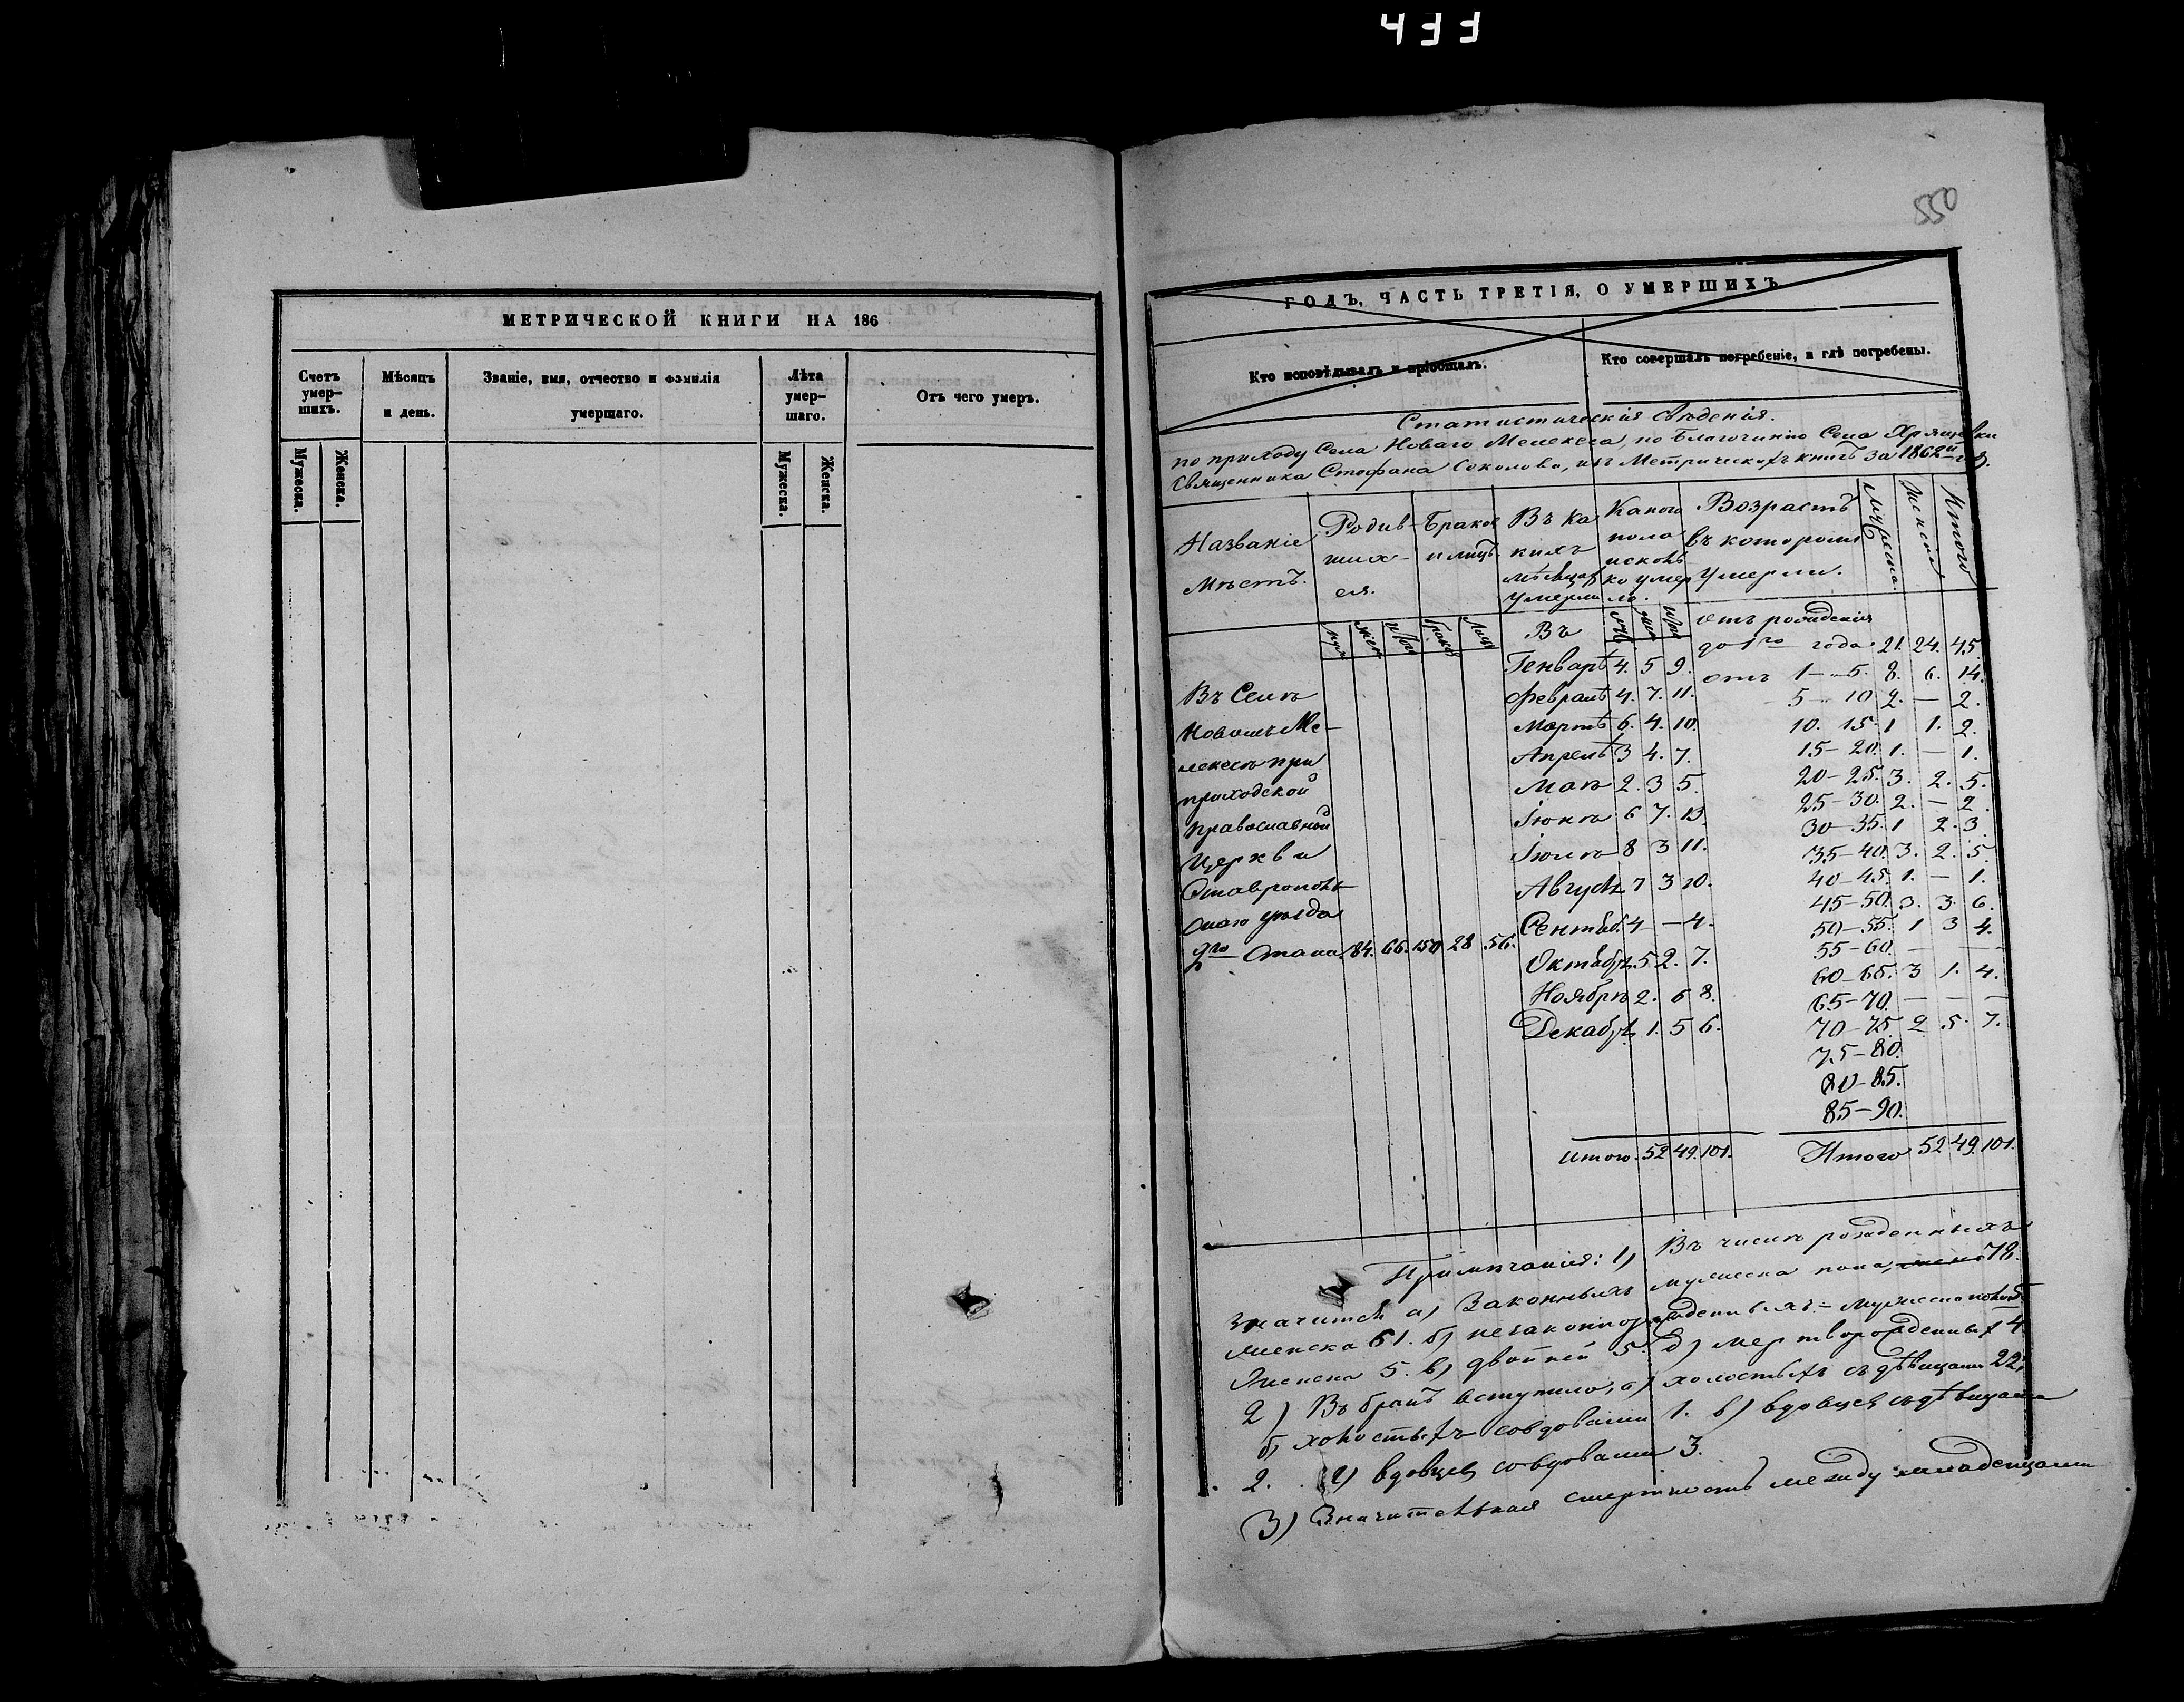 433
550
МЕТРИЧЕСКОЙ КНИГИ НА 186
Счетъ умер-шихъ.
Мѣсяцъ и день.
Званіе, имя, отчество и фамилія умершаго.
Лѣта умер-шаго.
Отъ чего умеръ.
Мужеска.
Женска.
Мужеска.
Женска.
ГОДЪ, ЧАСТЬ ТРЕТІЯ, О УМЕРШИХЪ
Кто исповѣдывалъ и пріобщалъ.
Кто совершалъ погребеніе, и гдѣ погребены.
Статистическія свѣденія.
по приходу Села Новаго Мелекеса, по Благочинію Села Хрящевки
Священника Стефана Соколова, изъ Метрическихъ книгъ за 1862й годъ.
Названіе Мѣстъ.
Родив-ших-ся.
Браков и лицъ
Въ ка кихъ мѣсяцах умерли
Какого пола и скольк ко умер ло.
Возрастъ въ которомъ Умерли.
Мужеска.
Женска
Итого
муж жен итого браков лиц
Въ
муж жен итого
Отъ рожденія
до 1го года 21. 24. 45.
Генварѣ 4. 5 9.
отъ 1–5. 8. 6. 14.
Въ Селѣ
Февралѣ 4. 7. 11.
5–10 2. — 2.
Новомъ Ме-
Мартѣ 6. 4. 10.
10. 15. 1 1. 2.
лекесѣ при
Апрелѣ 3 4. 7.
15–20. 1. — 1.
приходской
Маѣ 2. 3 5.
20–25. 3. 2. 5.
25–30. 2. — 2.
православной
Іюнѣ 6 7. 13.
30–35. 1 2. 3.
Церкви
Іюлѣ 8 3 11.
35–40. 3. 2. 5.
Ставрополь-
Августѣ 7 3 10.
40–45. 1. — 1.
скаго уѣзда
45–50. 3. 3. 6.
2го Стана 84. 66. 150 28 56.
Сентяб. 4 — 4.
50–55. 1 3 4.
Октябрѣ 5 2. 7.
55–60. — — —
60–65. 3 1. 4.
Ноябрѣ 2. 6 8.
65–70. — — —
Декабрѣ 1. 5 6.
70–75 2 5. 7.
75–80.
80–85.
85–90.
Итого. 52 49. 101.
Итого 52 49. 101.
Примѣчанія: 1) Въ числѣ рожденныхъ
значится а) Законныхъ мужеска пола, 78.
женска 61. б) незаконнорожденныхъ – Мужеска пола
Женска 5. в) двойней 5. д) мертворожденных 4
2) Въ бракъ вступило, а) холостыхъ съ дѣвицами 22,
б) холостыхъ со вдовами 1. в) вдовцевъ съ дѣвицами
2. г) вдовцев со вдовами 3.
3) Значительная смертность между младенцами